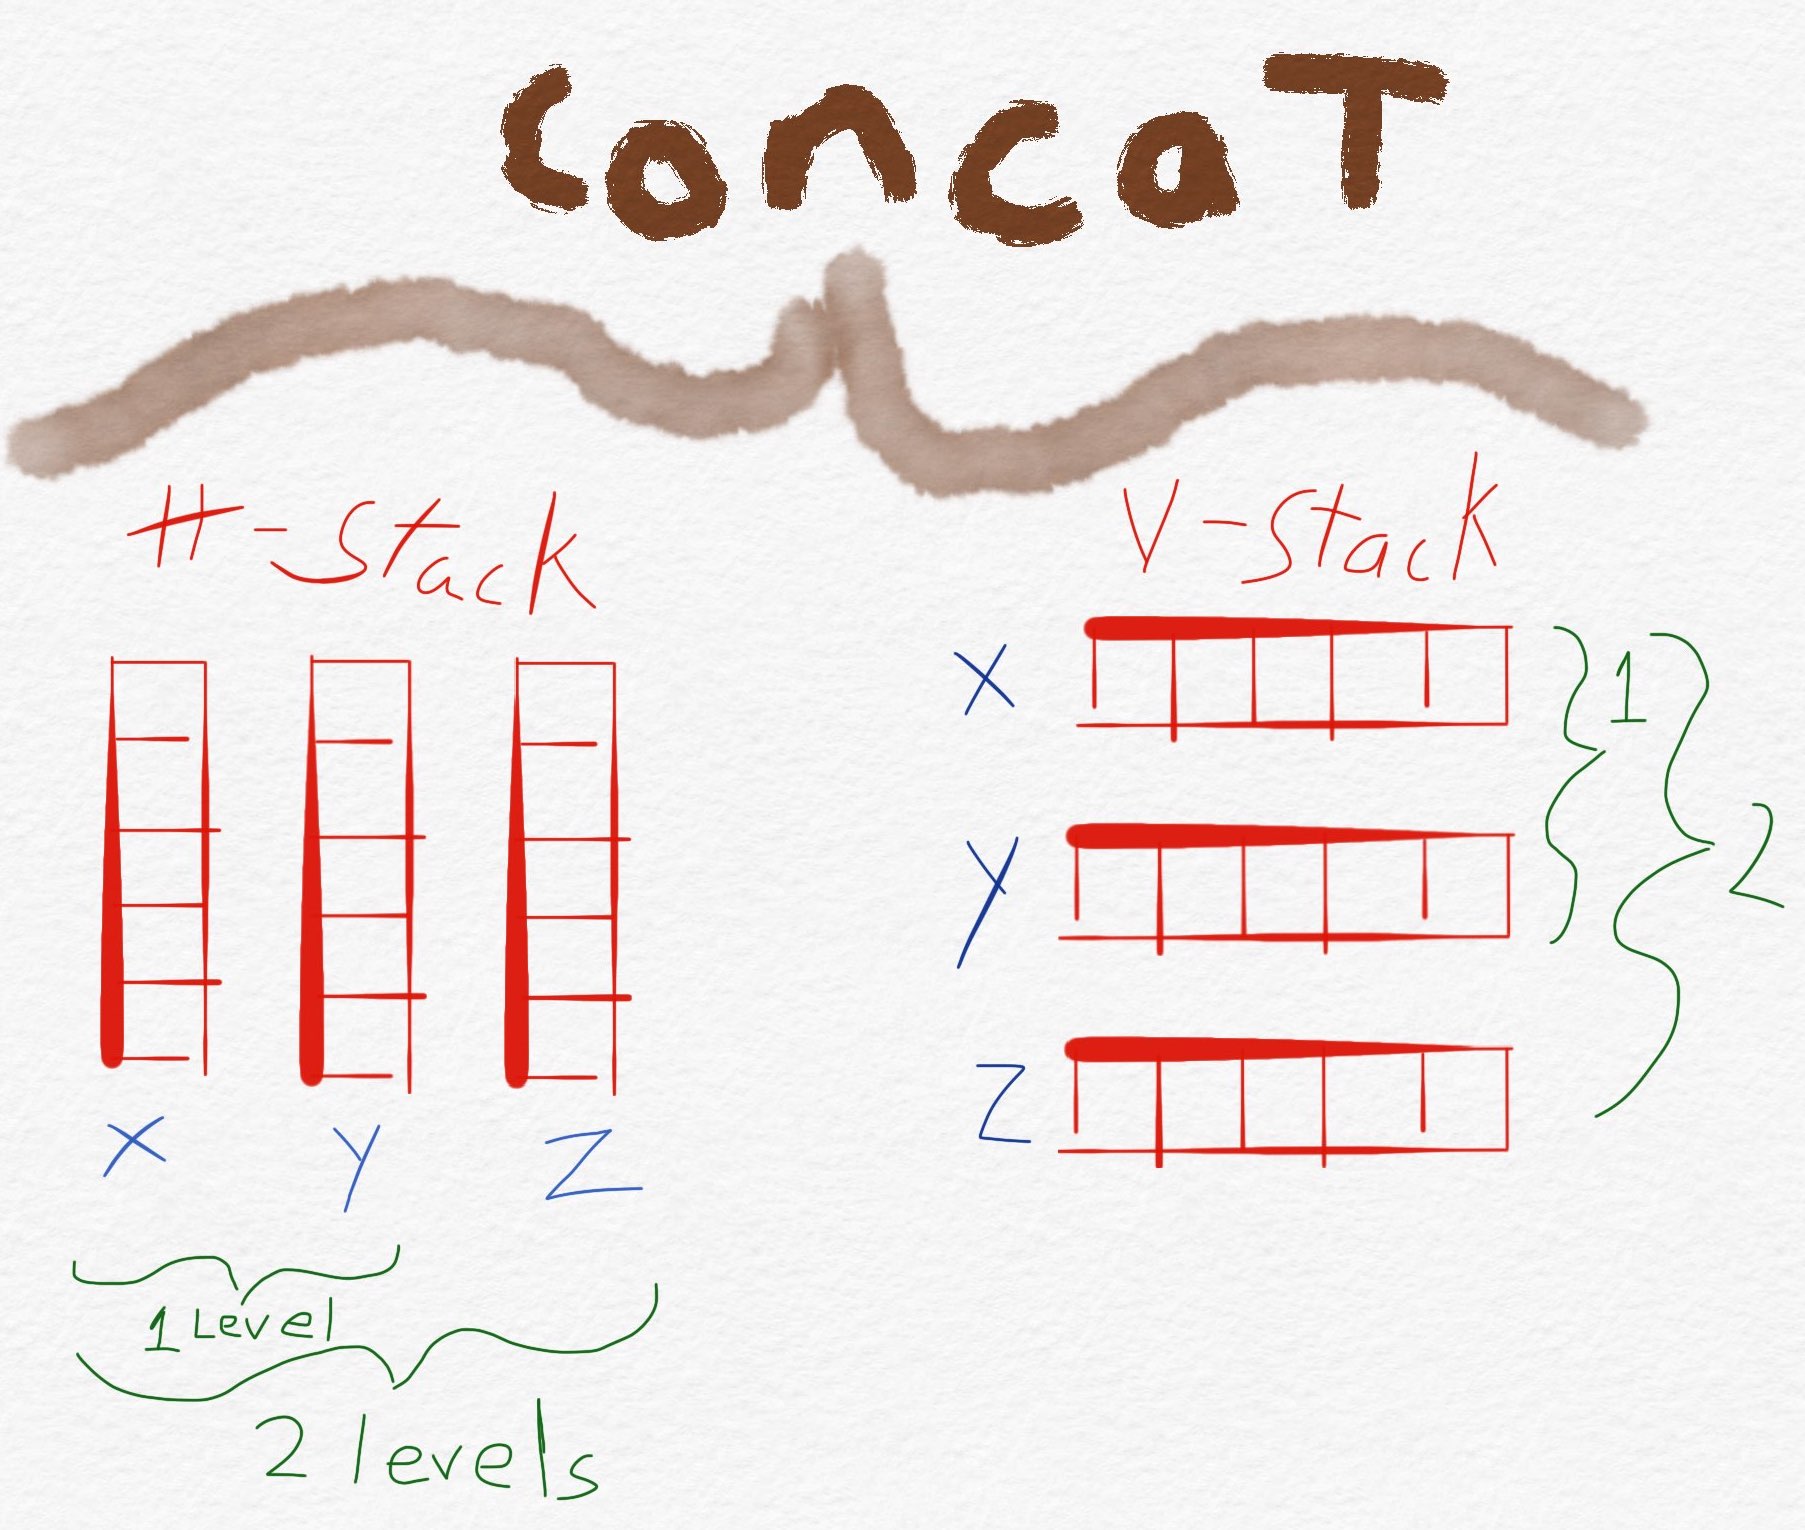 concaT
H-Stack
X Y Z
1 Level
2 levels
V-Stack
X
Y
Z
1
2